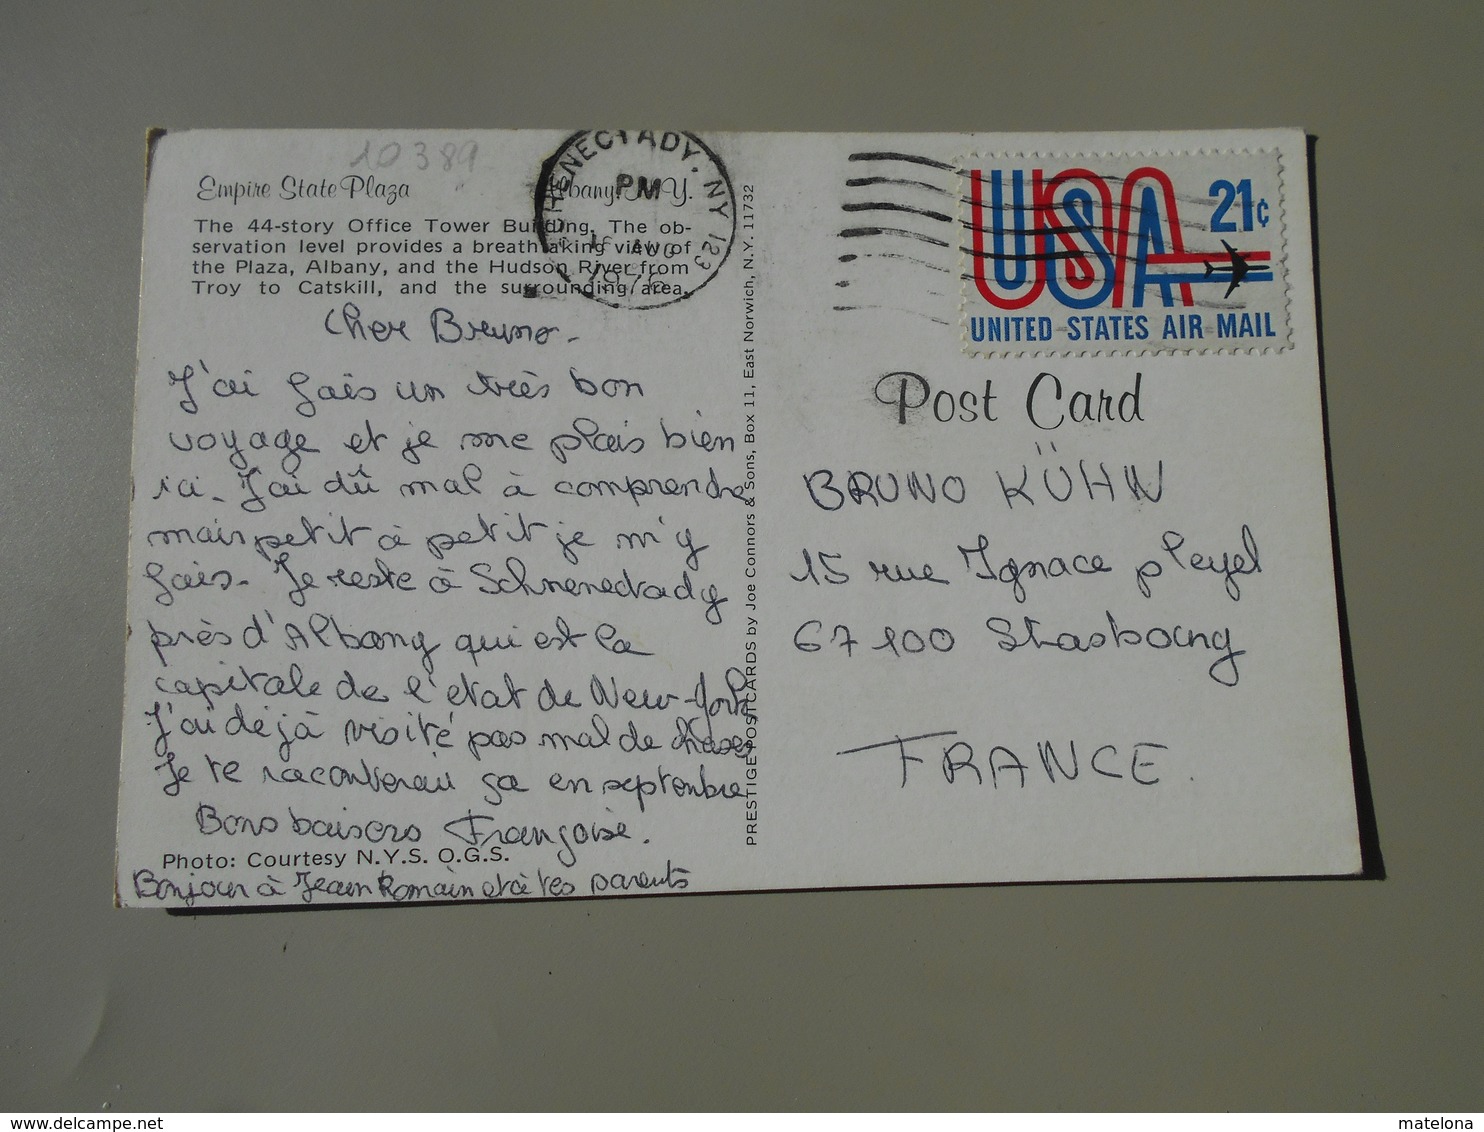 10389
Empire State Plaza Albany, N.Y.
The 44-story Office Tower Building. The ob-
servation level provides a breathtaking view of
the Plaza, Albany, and the Hudson River from
Troy to Catskill, and the surrounding area.
SCHENECTADY, NY 123
PM
AUG
1976
USA 21¢
UNITED STATES AIR MAIL
Cher Bruno.
J'ai fais un très bon
voyage et je me plais bien
ici. J'ai dû mal à comprendre
mais petit à petit je m'y
fais. Je reste à Schnenectady
près d'Albany qui est la
capitale de l'état de New-York
J'ai déjà visité pas mal de choses
Je te raconterai ça en septembre
Bons baisers Françoise.
Photo: Courtesy N.Y.S. O.G.S.
Bonjour à Jean Romain et à tes parents
PRESTIGE POSTCARDS by Joe Connors & Sons, Box 11, East Norwich, N.Y. 11732
Post Card
BRUNO KÜHN
15 rue Ignace pleyel
67100 Strasbourg
FRANCE.
delcampe.net
matelona